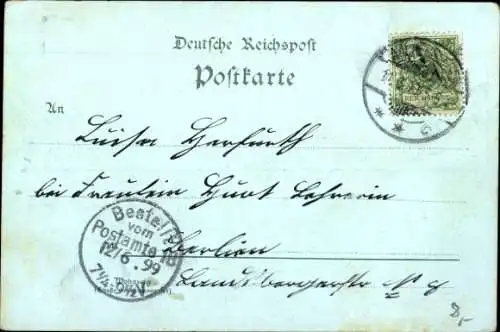 Deutsche Reichspost
Postkarte
An
Luisa Herfurth
bei Fräulein Hurt Lehrerin
Berlin
Landsbergerstr No 8
Bestellt
vom
Postamte
12/6.99
7¼-9½V.
8,-